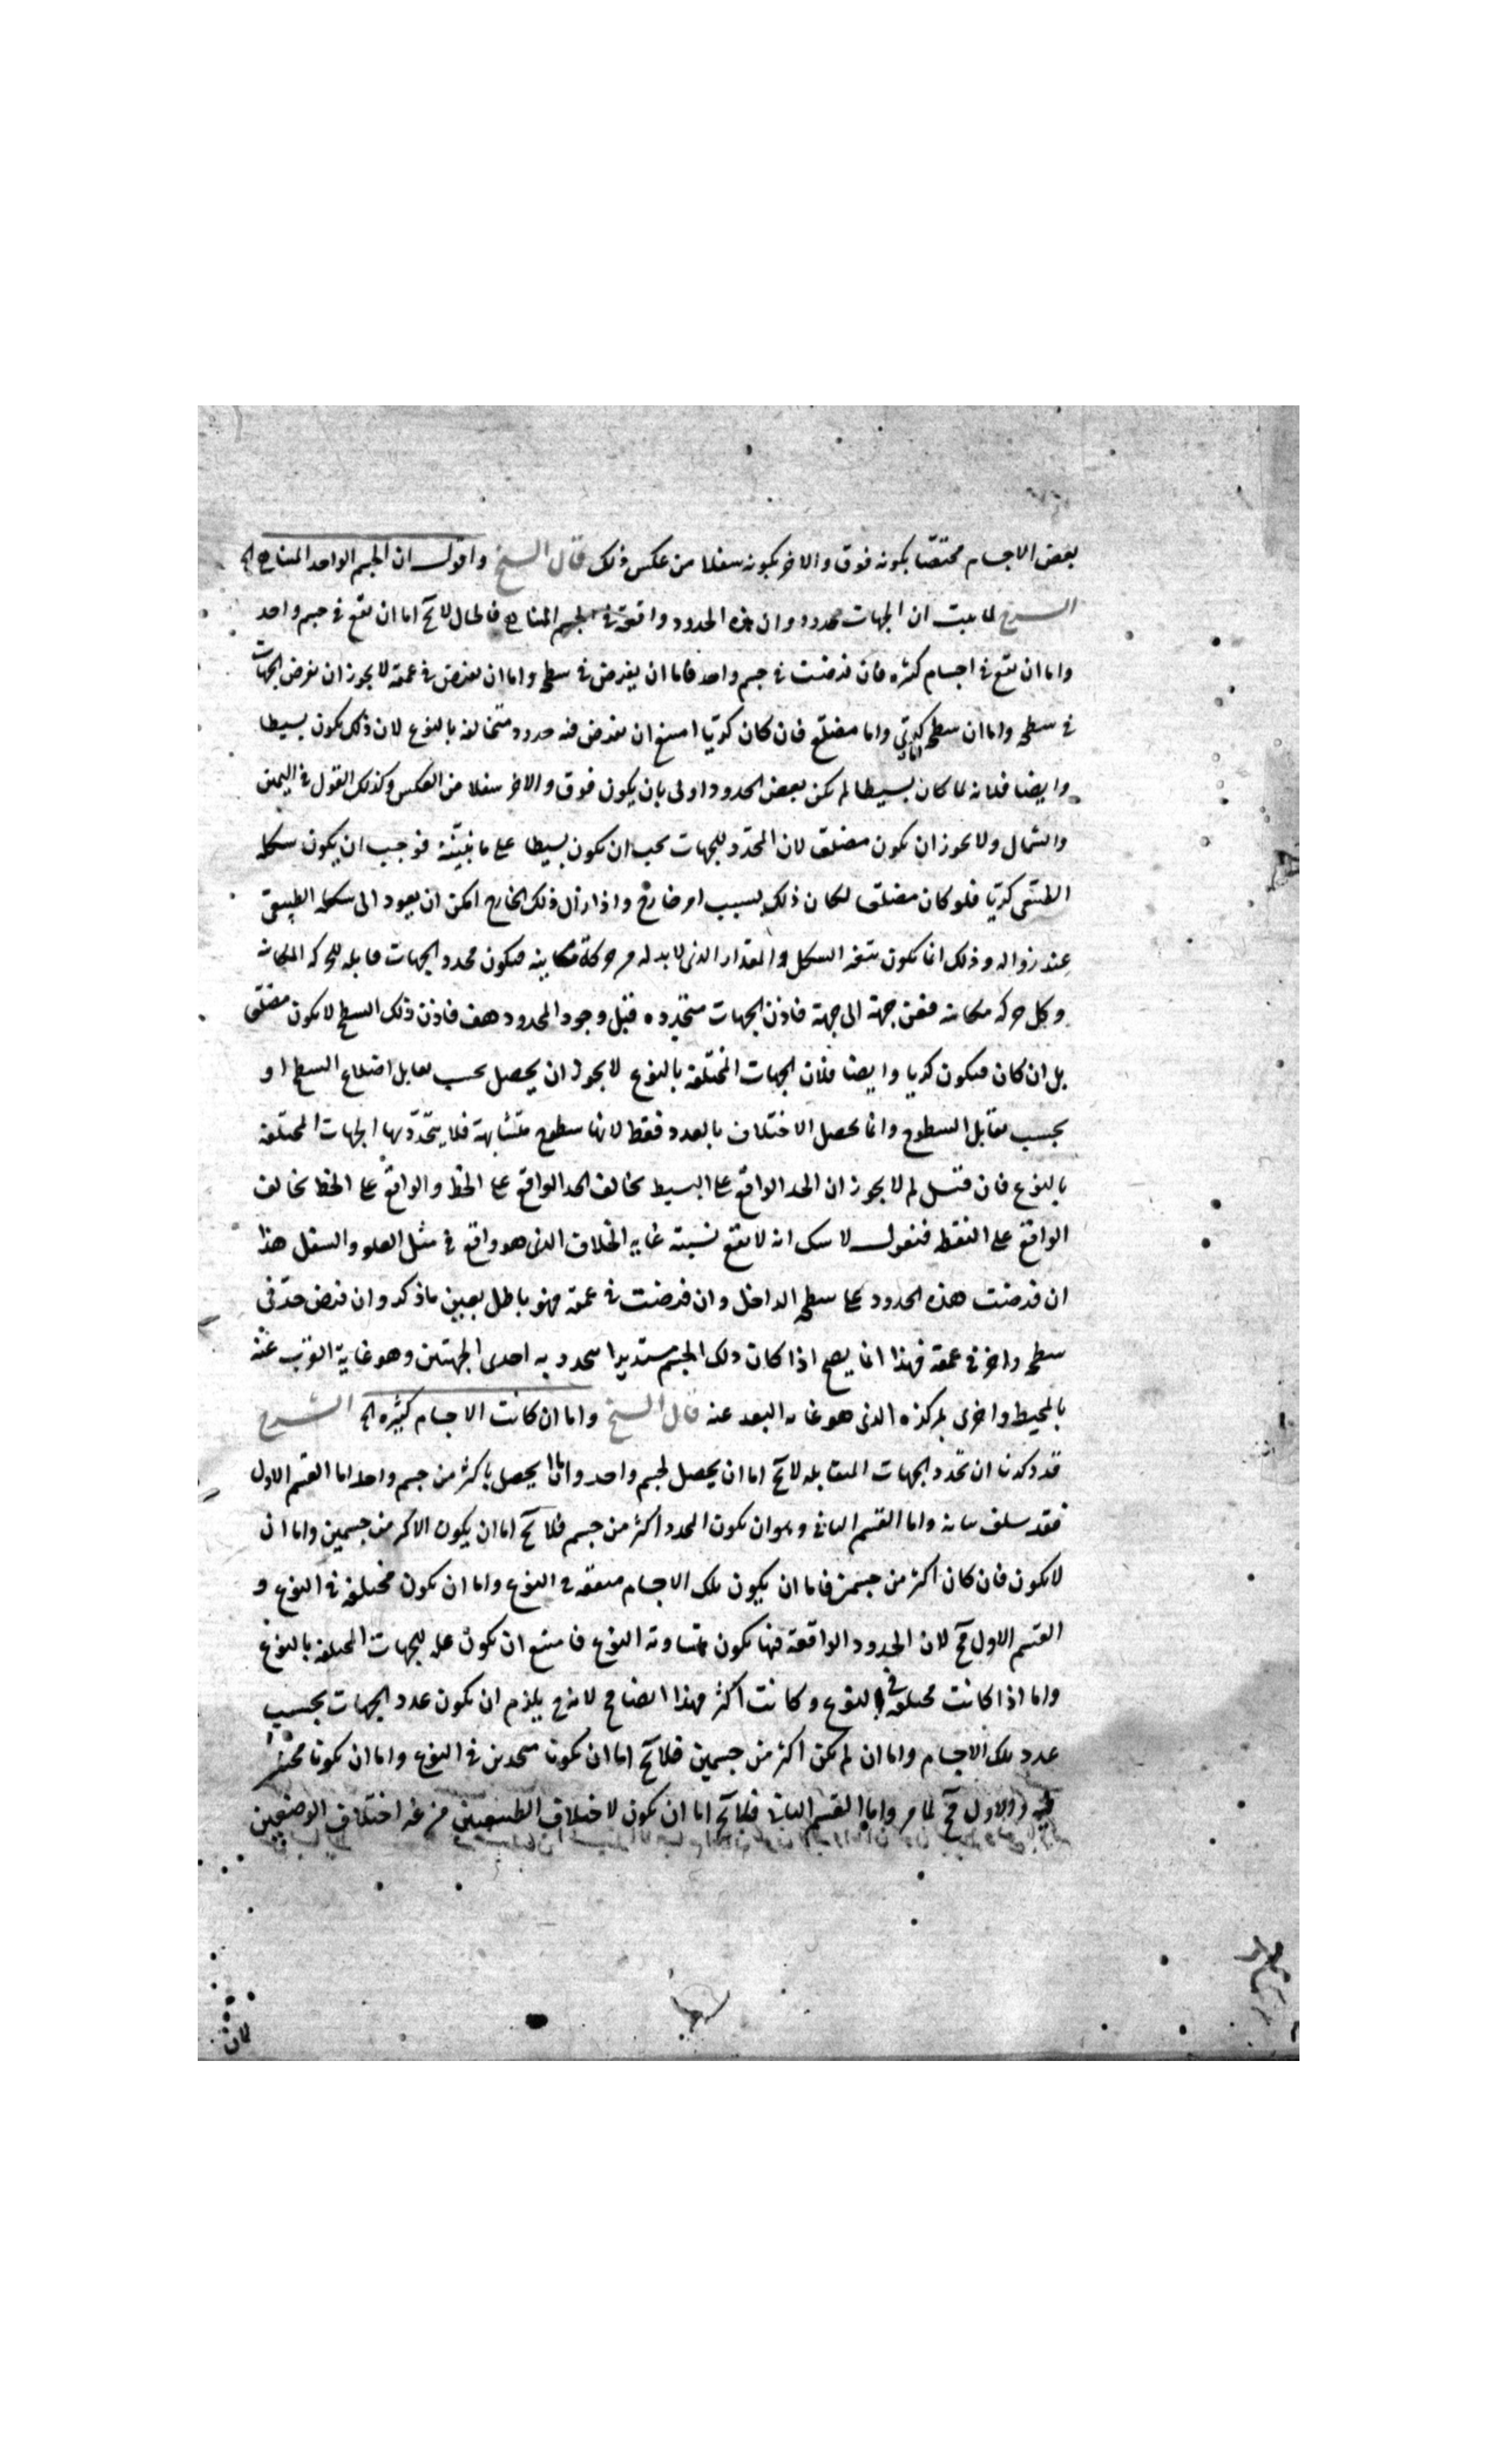 بعض الاجسام مختصّا بكونه فوق والاخر بكونه سفلا من عكس ذلك قال الشيخ واقول ان الجسم الواحد المتناهى الخ
الشرح لما ثبت ان الجهات محدودة وان هذه الحدود واقعة فى الجسم المتناهى فالحال لا يخ اما ان تقع فى جسم واحد
واما ان تقع فى اجسام كثيره فان فرضت فى جسم واحد فاما ان يفرض فى سطحه واما ان يفرض فى عمقه لا يجوز ان تفرض الجهات
فى سطحه واما ان سطحه اما كرىّ واما مضلع فان كان كريا امتنع ان تفرض فيه حدود متخالفه بالنوع لان ذلك يكون بسيطا
وايضا فلانه لما كان بسيطا لم يكن بعض الحدود اولى بان يكون فوق والاخر سفلا من العكس وكذلك القول فى اليمين
والشمال ولا يجوز ان يكون مضلعا لان المحدّد للجهات يجب ان يكون بسيطا على ما نبيّنه فوجب ان يكون شكله
الطبيعى كريّا فلو كان مضلعا لكان ذلك بسبب امر خارج واذا زال ذلك الخارج امكن ان يعود الى شكله الطبيعى
عند زواله وذلك انما يكون بتغير الشكل والمقدار الذى لا بد له من حركة مكانيه فيكون محدد الجهات قابله للحركه المكانيه
وكل حركه مكانيه فمن جهة الى جهة فاذن الجهات متحدده قبل وجود المحدود هف فاذن ذلك السطح لا يكون مضلعا
بل ان كان فيكون كريا وايضا فلان الجهات المختلفه بالنوع لا يجوز ان يحصل بحسب تقابل اضلاع السطح او
بحسب تقابل السطوح وانما يحصل الاختلاف بالعدد فقط لانها سطوح متشابهة فلا يتحدّد بها الجهات المختلفه
بالنوع فان قيل لم لا يجوز ان الحد الواقع على البسيط يخالف الحد الواقع على الخط والواقع على الخط يخالف
الواقع على النقطه فنقول لا شك انه لا يقع نسبته غاية الخلاف الذى هو واقع فى مثل العلو والسفل هذا
ان فرضت هذه الحدود على سطحه الداخل وان فرضت فى عمقه فهو باطل بعين ما ذكر وان فرض حدّ فى
سطحه واخر فى عمقه فهذا انما يصح اذا كان ذلك الجسم مستديرا يتحدد به احدى الجهتين وهو غاية القرب عنه
بالمحيط واخرى بمركزه الذى هو غايه البعد عنه قال الشيخ واما ان كانت الاجسام كثيره الخ الشرح
قد ذكرنا ان تحدد الجهات المتقابله لا يخ اما ان يحصل لجسم واحد واما يحصل باكثر من جسم واحد اما القسم الاول
فقد سلف بيانه واما القسم الثانى وهو ان يكون المحدد اكثر من جسم فلا يخ اما ان يكون الاكثر من جسمين واما ان
لا يكون فان كان اكثر من جسمين فاما ان يكون تلك الاجسام متفقه فى النوع واما ان يكون مختلفه فى النوع و
القسم الاول مح لان الحدود الواقعة فيها يكون متساويه النوع فامتنع ان يكون علة للجهات المختلفه بالنوع
واما اذا كانت مختلفه فى النوع وكانت اكثر فهذا ايضا مح لانه ح يلزم ان يكون عدد الجهات بحسب
عدد تلك الاجسام واما ان لم يكن اكثر من جسمين فلا يخ اما ان يكونا متحدين فى النوع واما ان يكونا مختلفين
فيه والاول مح لما مر واما القسم الثانى فلا يخ اما ان يكون لاختلاف الطبيعتين من غير اختلاف الوضعين
لان